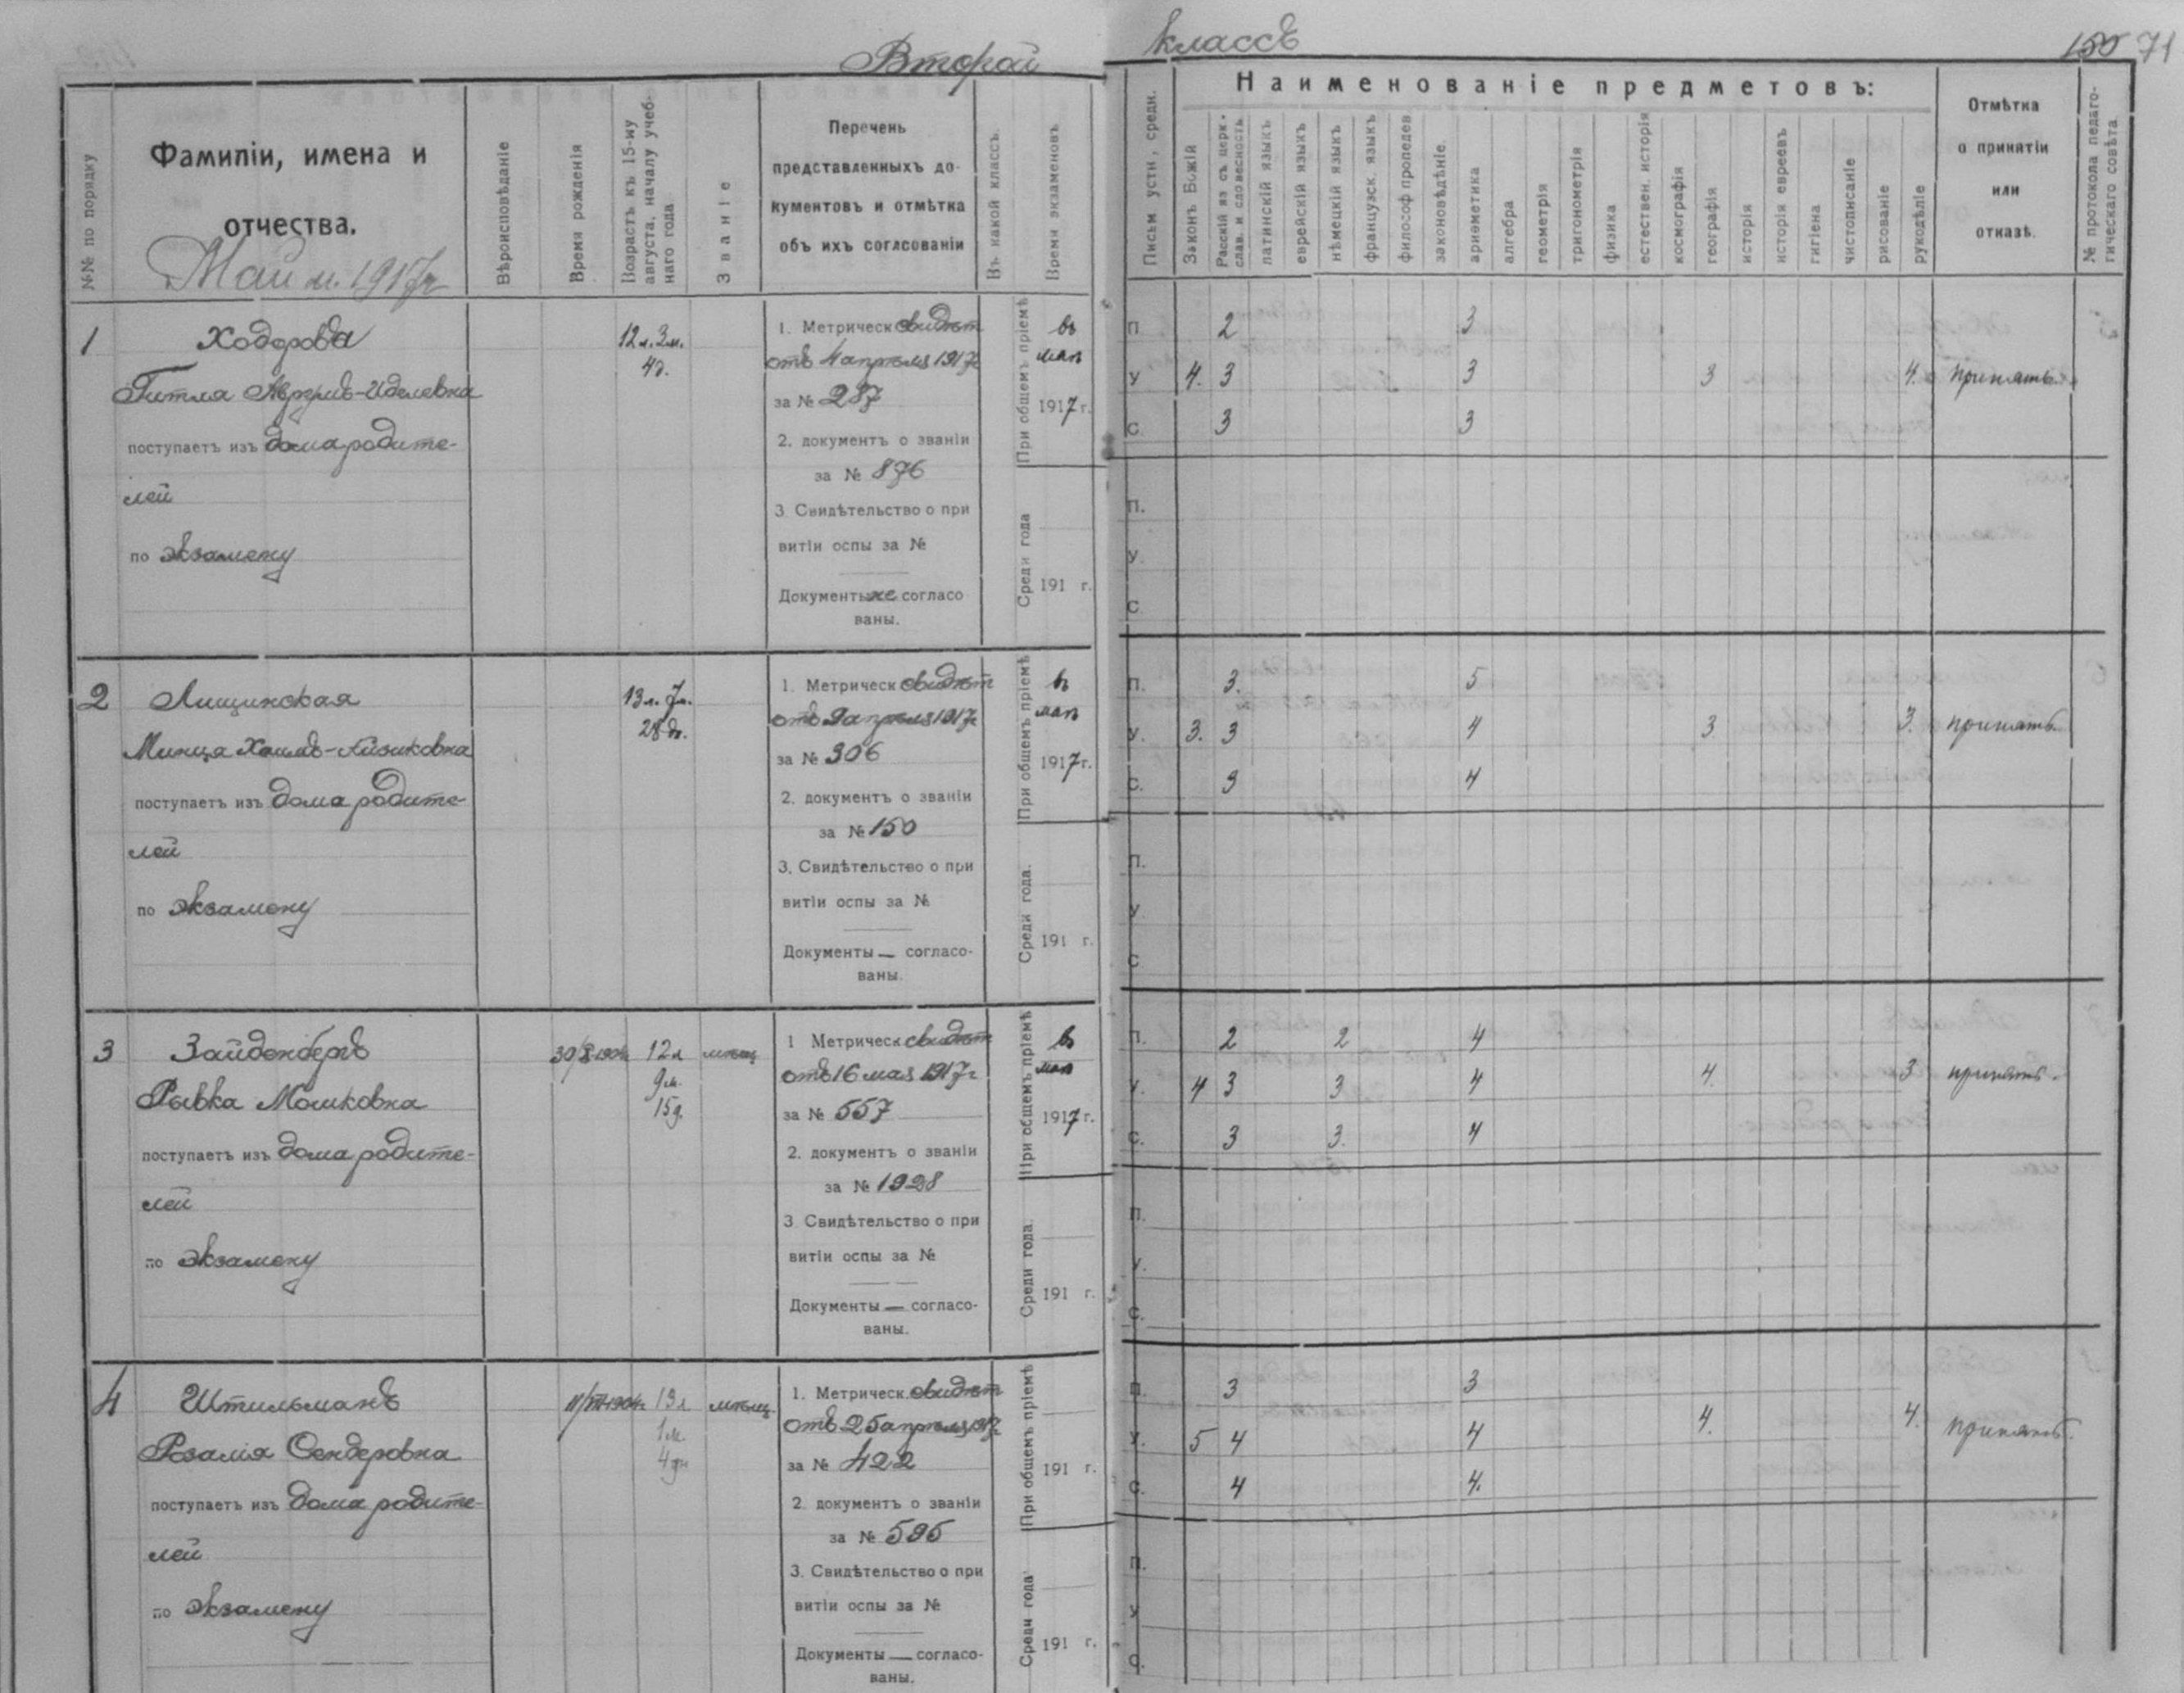 Второй классъ
150 71
№№ по порядку
Фамиліи, имена и
отчества.
Май м. 1917 г.
Вѣроисповѣданіе
Время рожденія
Возрасть къ 15-му
августа, началу учеб-
наго года
Званіе
Перечень
представленныхъ до-
кументовъ и отмѣтка
объ ихъ согласованіи
Въ какой классъ.
Время экзаменовъ
Письм устн, средн.
Наименованіе предметовъ:
Законъ Божій
Русскій яз съ церк-
слав. и словесность
латинскій языкъ
еврейскій языкъ
нѣмецкій языкъ
французск. языкъ
философ пропедев
законовѣдѣніе.
ариѳметика
алгебра
геометрія
тригонометрія
физика
естествен. исторія
космографія
географія
исторія
исторія евреевъ
гигіена
чистописаніе
рисованіе
рукодѣліе
Отмѣтка
о принятіи
или
отказѣ.
№ протокола педаго-
гическаго совѣта
1
Ходорова
Гитля -Иделевна
поступаетъ изъ дома родите-
лей
по экзамену
12 л. 3 м.
4 д.
1. Метрическ свидѣт
отъ 4 апрѣля 1917 г
за № 287
2. документъ о званіи
за № 876
3. Свидѣтельство о при
витіи оспы за №
Документы не согласо
ваны.
При общемъ пріемѣ
въ
маѣ
1917 г.
Среди года
191 г.
П. 2 3
У 4. 3 3 3 4. принять.
С. 3 3
П.
У.
С.
2
Лищинская
Минця
поступаетъ изъ дома родите-
лей
по экзамену
13 л. 7 м.
28 д.
1. Метрическ свидѣт
отъ 9 апрѣля 1917 г
за № 306
2. документъ о званіи
за № 150
3. Свидѣтельство о при
витіи оспы за №
Документы — согласо-
ваны.
При общемъ пріемѣ
въ
маѣ
1917 г.
Среди года.
191 г.
П. 3. 5
У. 3. 3 4 3 3. принять.
С. 3 4
П.
У.
С
3
Зайденбергъ
Рывка Мошковна
поступаетъ изъ дома родите-
лей
по экзамену
12 л
9 м.
15 д.
мѣщ
1 Метрическ свидѣт
отъ 16 мая 1917 г
за № 557
2. документъ о званіи
за № 1928
3. Свидѣтельство о при
витіи оспы за №
Документы — согласо-
ваны.
При общемъ пріемѣ
въ
маѣ
1917 г.
Среди года.
191 г.
П. 2 2 4
У. 4 3 3 4 4. 3 принять.
С. 3 3. 4
П.
У.
С.
4
Штильманъ
Розалія Сендеровна
поступаетъ изъ дома родите-
лей
по экзамену
13 л
1 м.
4 дн
мѣщ.
1. Метрическ. свидѣт
отъ 25 апрѣля 1917
за № 422
2. документъ о званіи
за № 595
3. Свидѣтельство о при
витіи оспы за №
Документы — согласо-
ваны.
При общемъ пріемѣ
191 г.
Среди года
191 г.
П. 3 3
У. 5 4 4 4. 4. принять.
С. 4 4.
П.
У
С.